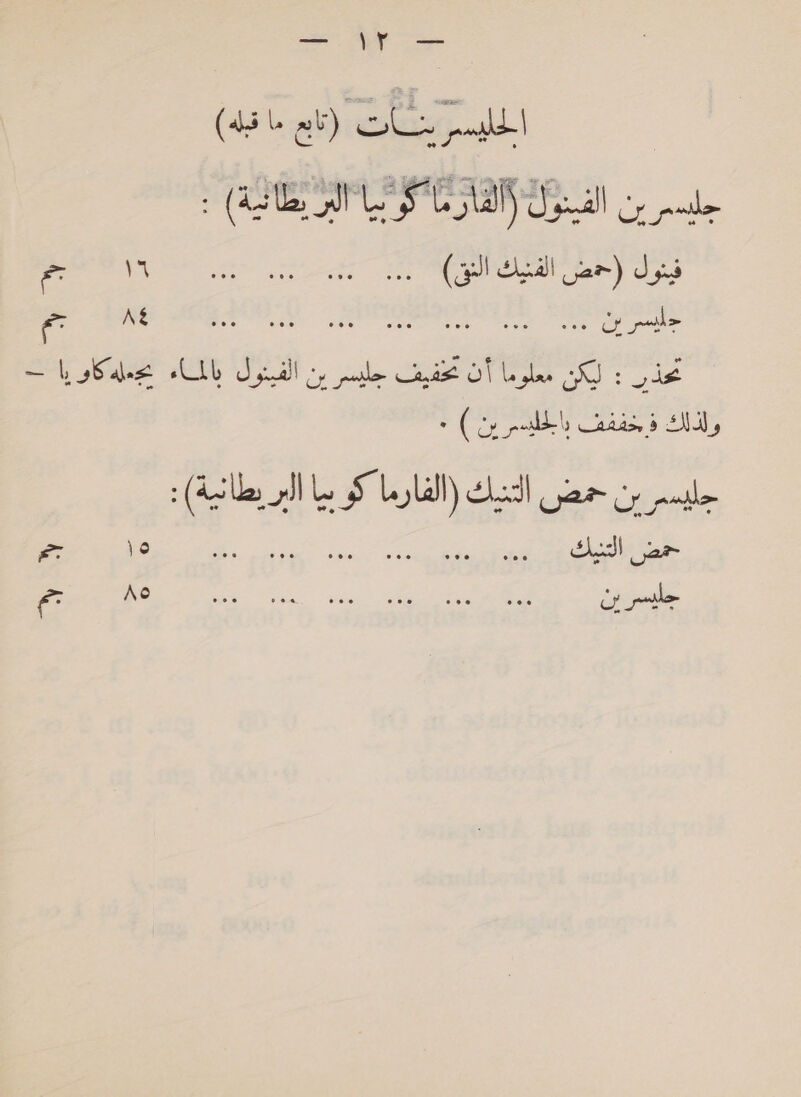 — ١٢ —
الجليسرينات (تابع ما قبله)
جليسرين الفينول (الفارماكوبيا البريطانية) :
فينول (حمض الفنيك النقى) ... ... ... ... ١٦ جم
جليسرين ... ... ... ... ... ... ... ٨٤ جم
تحذير : ليكن معلوما أن تخفيف جليسرين الفينول بالماء يجعله كاويا —
ولذلك فيخفف بالجليسرين ) ·
جليسرين حمض التنيك (الفارماكوبيا البريطانية) :
حمض التنيك ... ... ... ... ... ... ١٥ جم
جليسرين ... ... ... ... ... ... ٨٥ جم